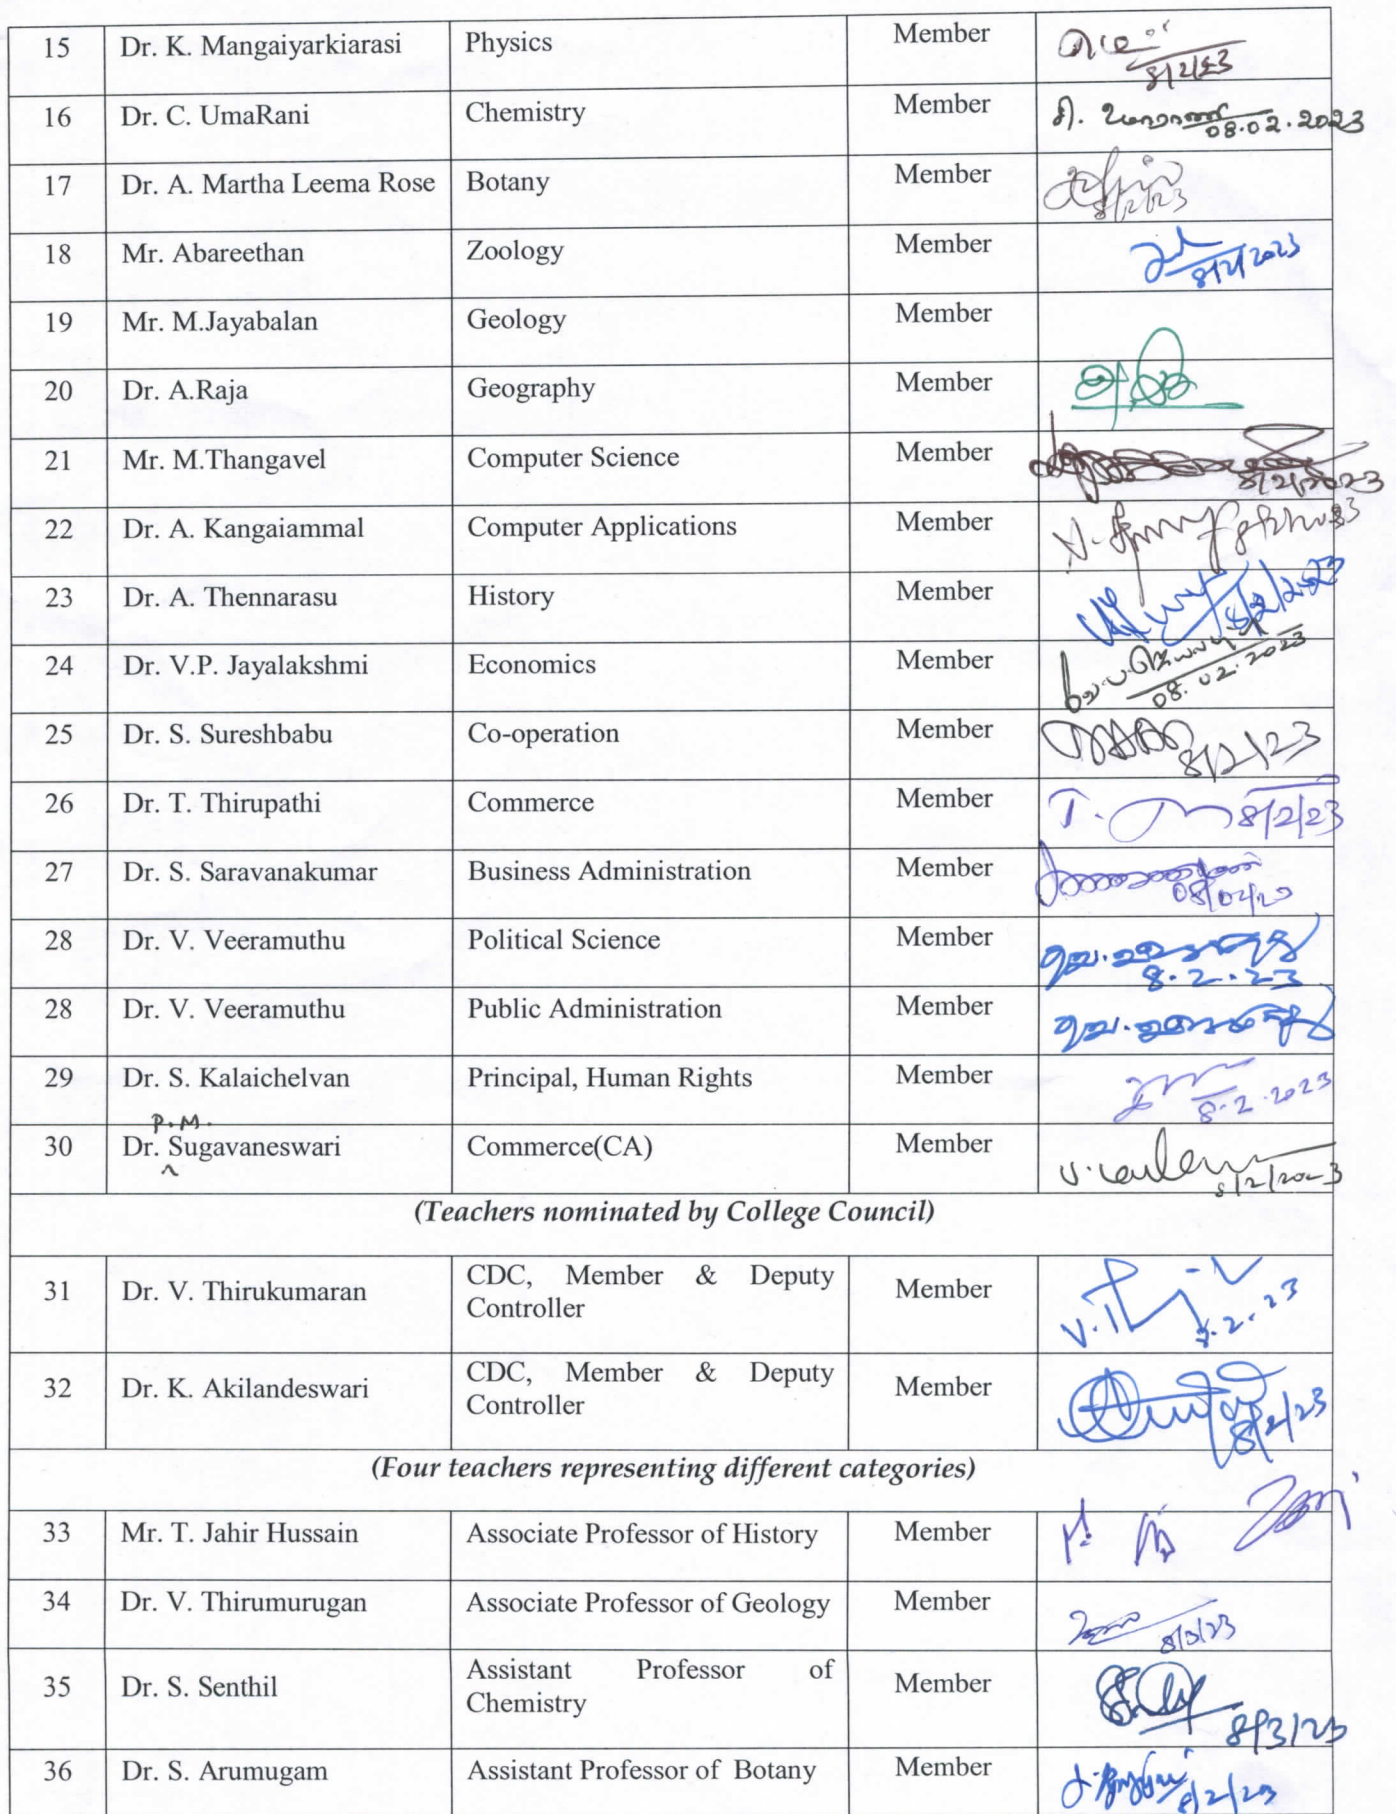 15 Dr. K. Mangaiyarkiarasi Physics Member 8/2/23
16 Dr. C. UmaRani Chemistry Member சி. உமாராணி 08.02.2023
17 Dr. A. Martha Leema Rose Botany Member 8/2/23
18 Mr. Abareethan Zoology Member 8/2/2023
19 Mr. M.Jayabalan Geology Member
20 Dr. A.Raja Geography Member
21 Mr. M.Thangavel Computer Science Member 8/2/2023
22 Dr. A. Kangaiammal Computer Applications Member
23 Dr. A. Thennarasu History Member 8/2/2023
24 Dr. V.P. Jayalakshmi Economics Member 08.02.2023
25 Dr. S. Sureshbabu Co-operation Member 8/2/23
26 Dr. T. Thirupathi Commerce Member T. 8/2/23
27 Dr. S. Saravanakumar Business Administration Member
28 Dr. V. Veeramuthu Political Science Member 8.2.23
28 Dr. V. Veeramuthu Public Administration Member
29 Dr. S. Kalaichelvan Principal, Human Rights Member 8.2.2023
P.M.
30 Dr. Sugavaneswari Commerce(CA) Member 8/2/2023
(Teachers nominated by College Council)
31 Dr. V. Thirukumaran CDC, Member & Deputy Member
Controller
32 Dr. K. Akilandeswari CDC, Member & Deputy Member 8/2/23
Controller
(Four teachers representing different categories)
33 Mr. T. Jahir Hussain Associate Professor of History Member
34 Dr. V. Thirumurugan Associate Professor of Geology Member 8/3/23
35 Dr. S. Senthil Assistant Professor of Member 8/3/23
Chemistry
36 Dr. S. Arumugam Assistant Professor of Botany Member 8/2/23